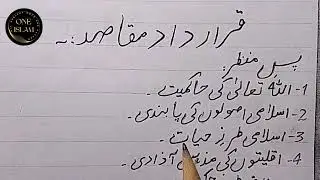 ONE
ISLAM
قرارداد مقاصد:۔
پسِ منظر:
1- اللہ تعالیٰ کی حاکمیت۔
2- اسلامی اصولوں کی پابندی۔
3- اسلامی طرزِ حیات۔
4- اقلیتوں کی مذہبی آزادی۔